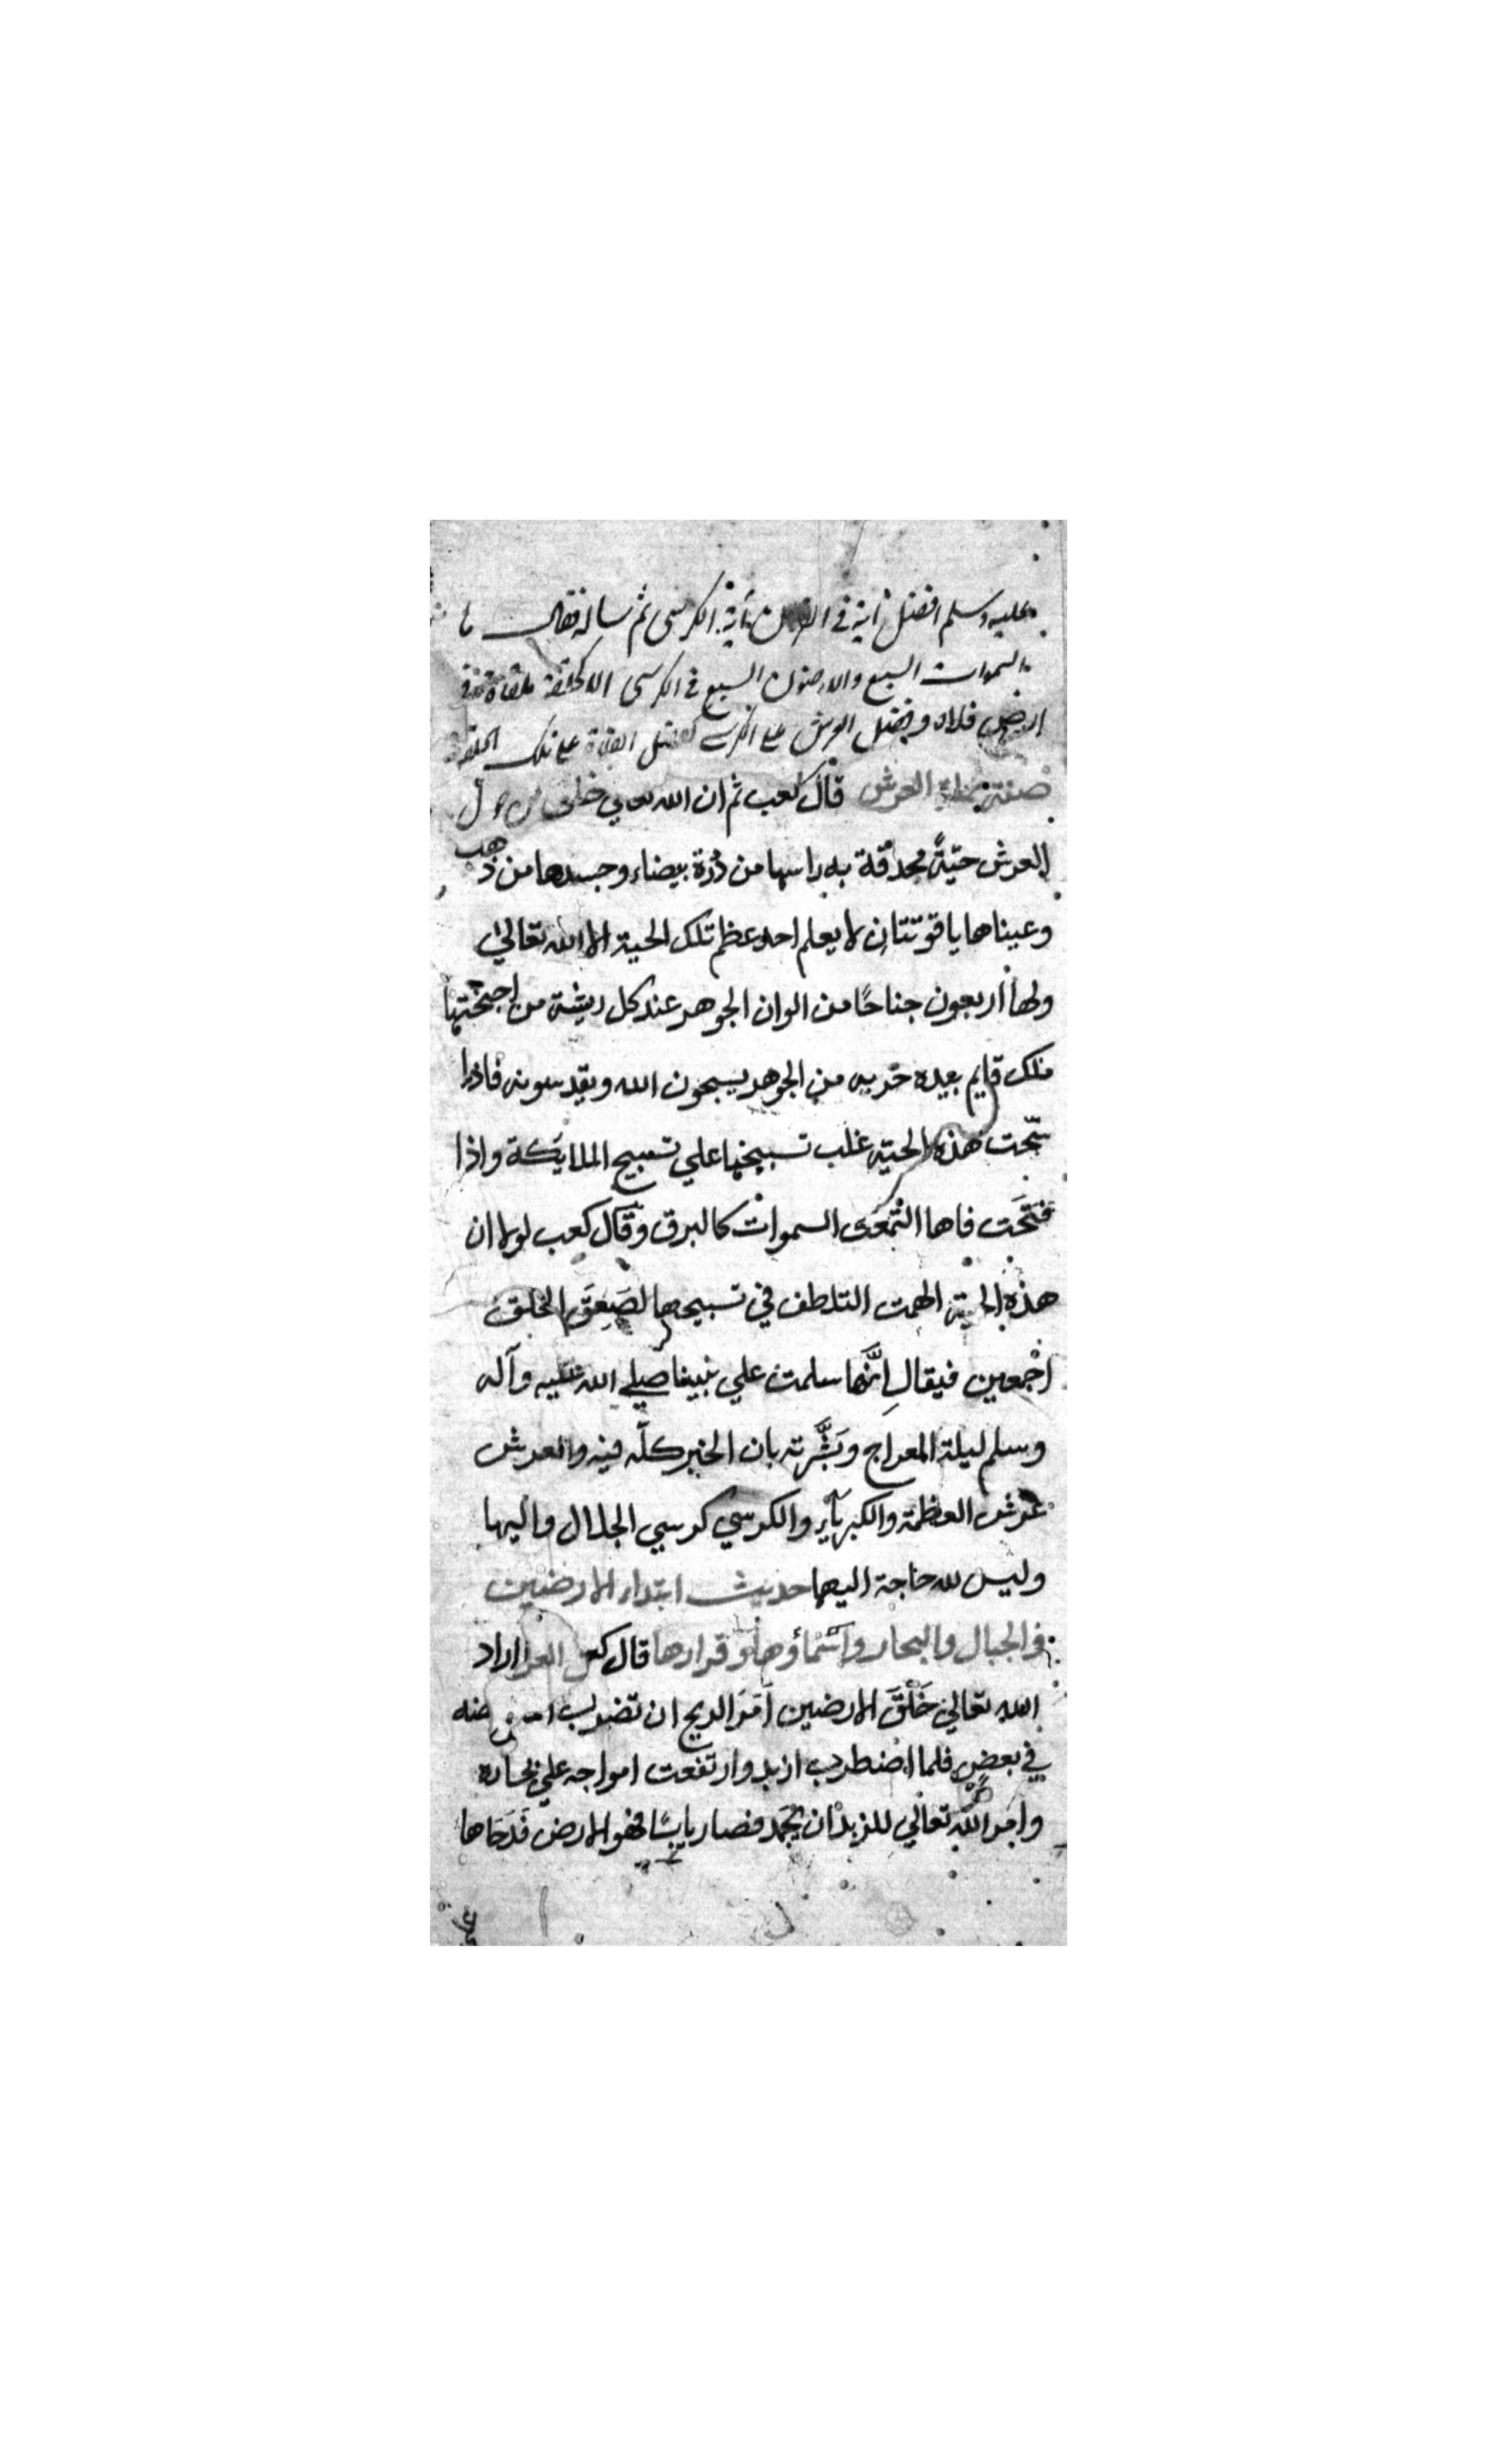 عليه وسلم افضل آية في القرآن آية الكرسى ثم ساله فقال ما
السموات السبع والارضون السبع في الكرسى الا كحلقة ملقاة في
ارض فلاة وفضل العرش على الكرسي كفضل الفلاة على تلك الحلقة
صفة العرش قال كعب ثم ان الله تعالي خلق حول
العرش حيّةً محدقة به راسها من دُرّة بيضاء وجسدها من ذهب
وعيناها ياقوتتان لا يعلم احد عظم تلك الحية الا الله تعالي
ولها اربعون جناحًا من الوان الجوهر عند كل ريشة من اجنحتها
ملك قايم بيده حربه من الجوهر يسبحون الله ويقدسونه فاذا
سبّحت هذه الحية غلب تسبيحها علي تسبيح الملايكة واذا
فَتَحَت فاها التمعت السموات كالبرق وقال كعب لولا ان
هذه الحية الهمت التلطف في تسبيحها لصَعِقَ الخلق
اجْمعين فيقال اِنَّهَا سلمت علي نبينا صلي الله عليه وآله
وسلم ليلة المعراج وبَشَّرته بان الخير كلّه فيه والعرش
عرش العظمة والكبرياء والكرسي كرسي الجلال واليها
وليس لله حاجة اليها حديث ابتداء الارضين
والجبال والبحار واسماؤها وقرارها قال كعب اراد
الله تعالي خَلْقَ الارضين اَمَرَ الريح ان تضرب
في بعضٍ فلما اضطرب ازبد وارتفعت امواجه علي بخاره
وامر الله تعالي للزبد ان يجمد فصار يابسًا فهو الارض فَدَحَاها